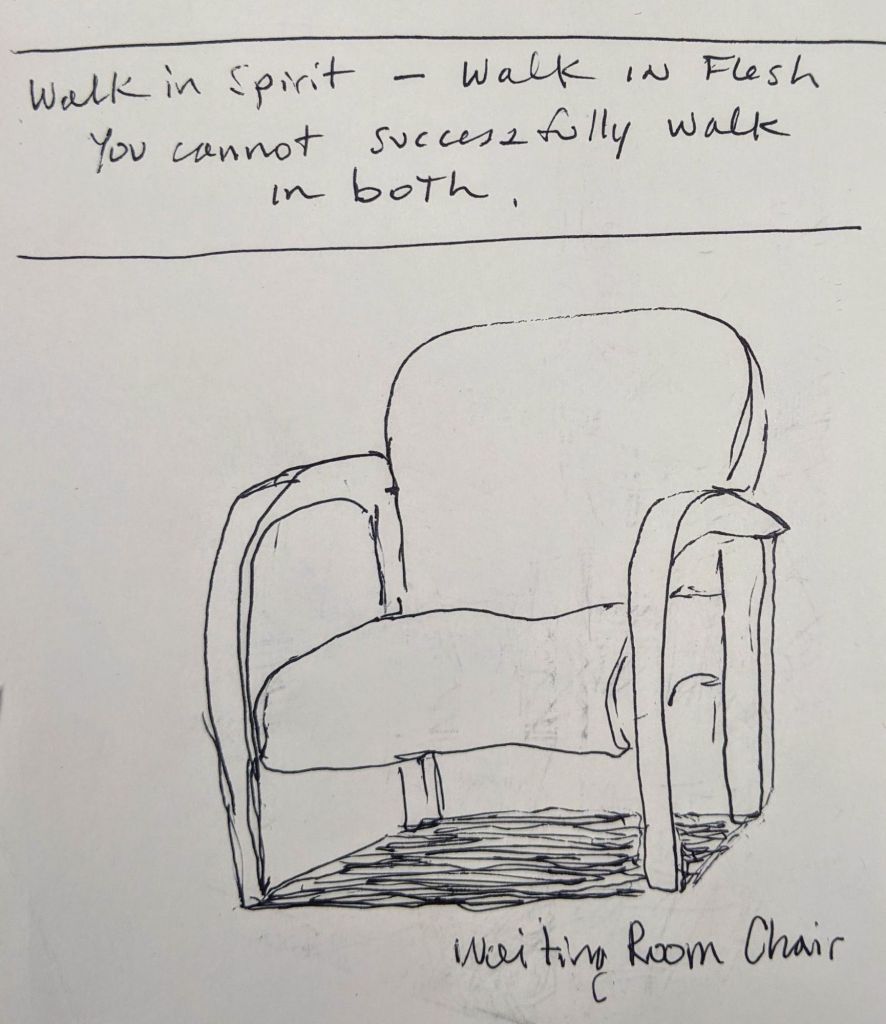 Walk in Spirit – Walk in Flesh
You cannot successfully walk
in both.
Waiting Room Chair